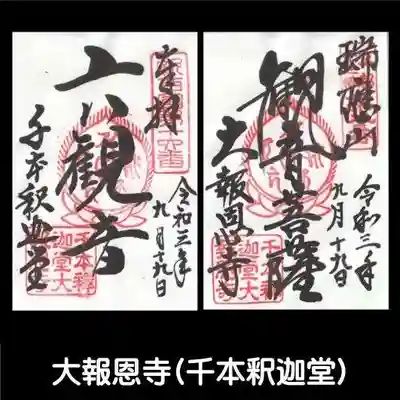 奉拝
六観音
千本釈迦堂
令和三年
九月十九日
瑞應山
観音菩薩
大報恩寺
令和三年
九月十九日
千本釈
迦堂大
大報恩寺(千本釈迦堂)